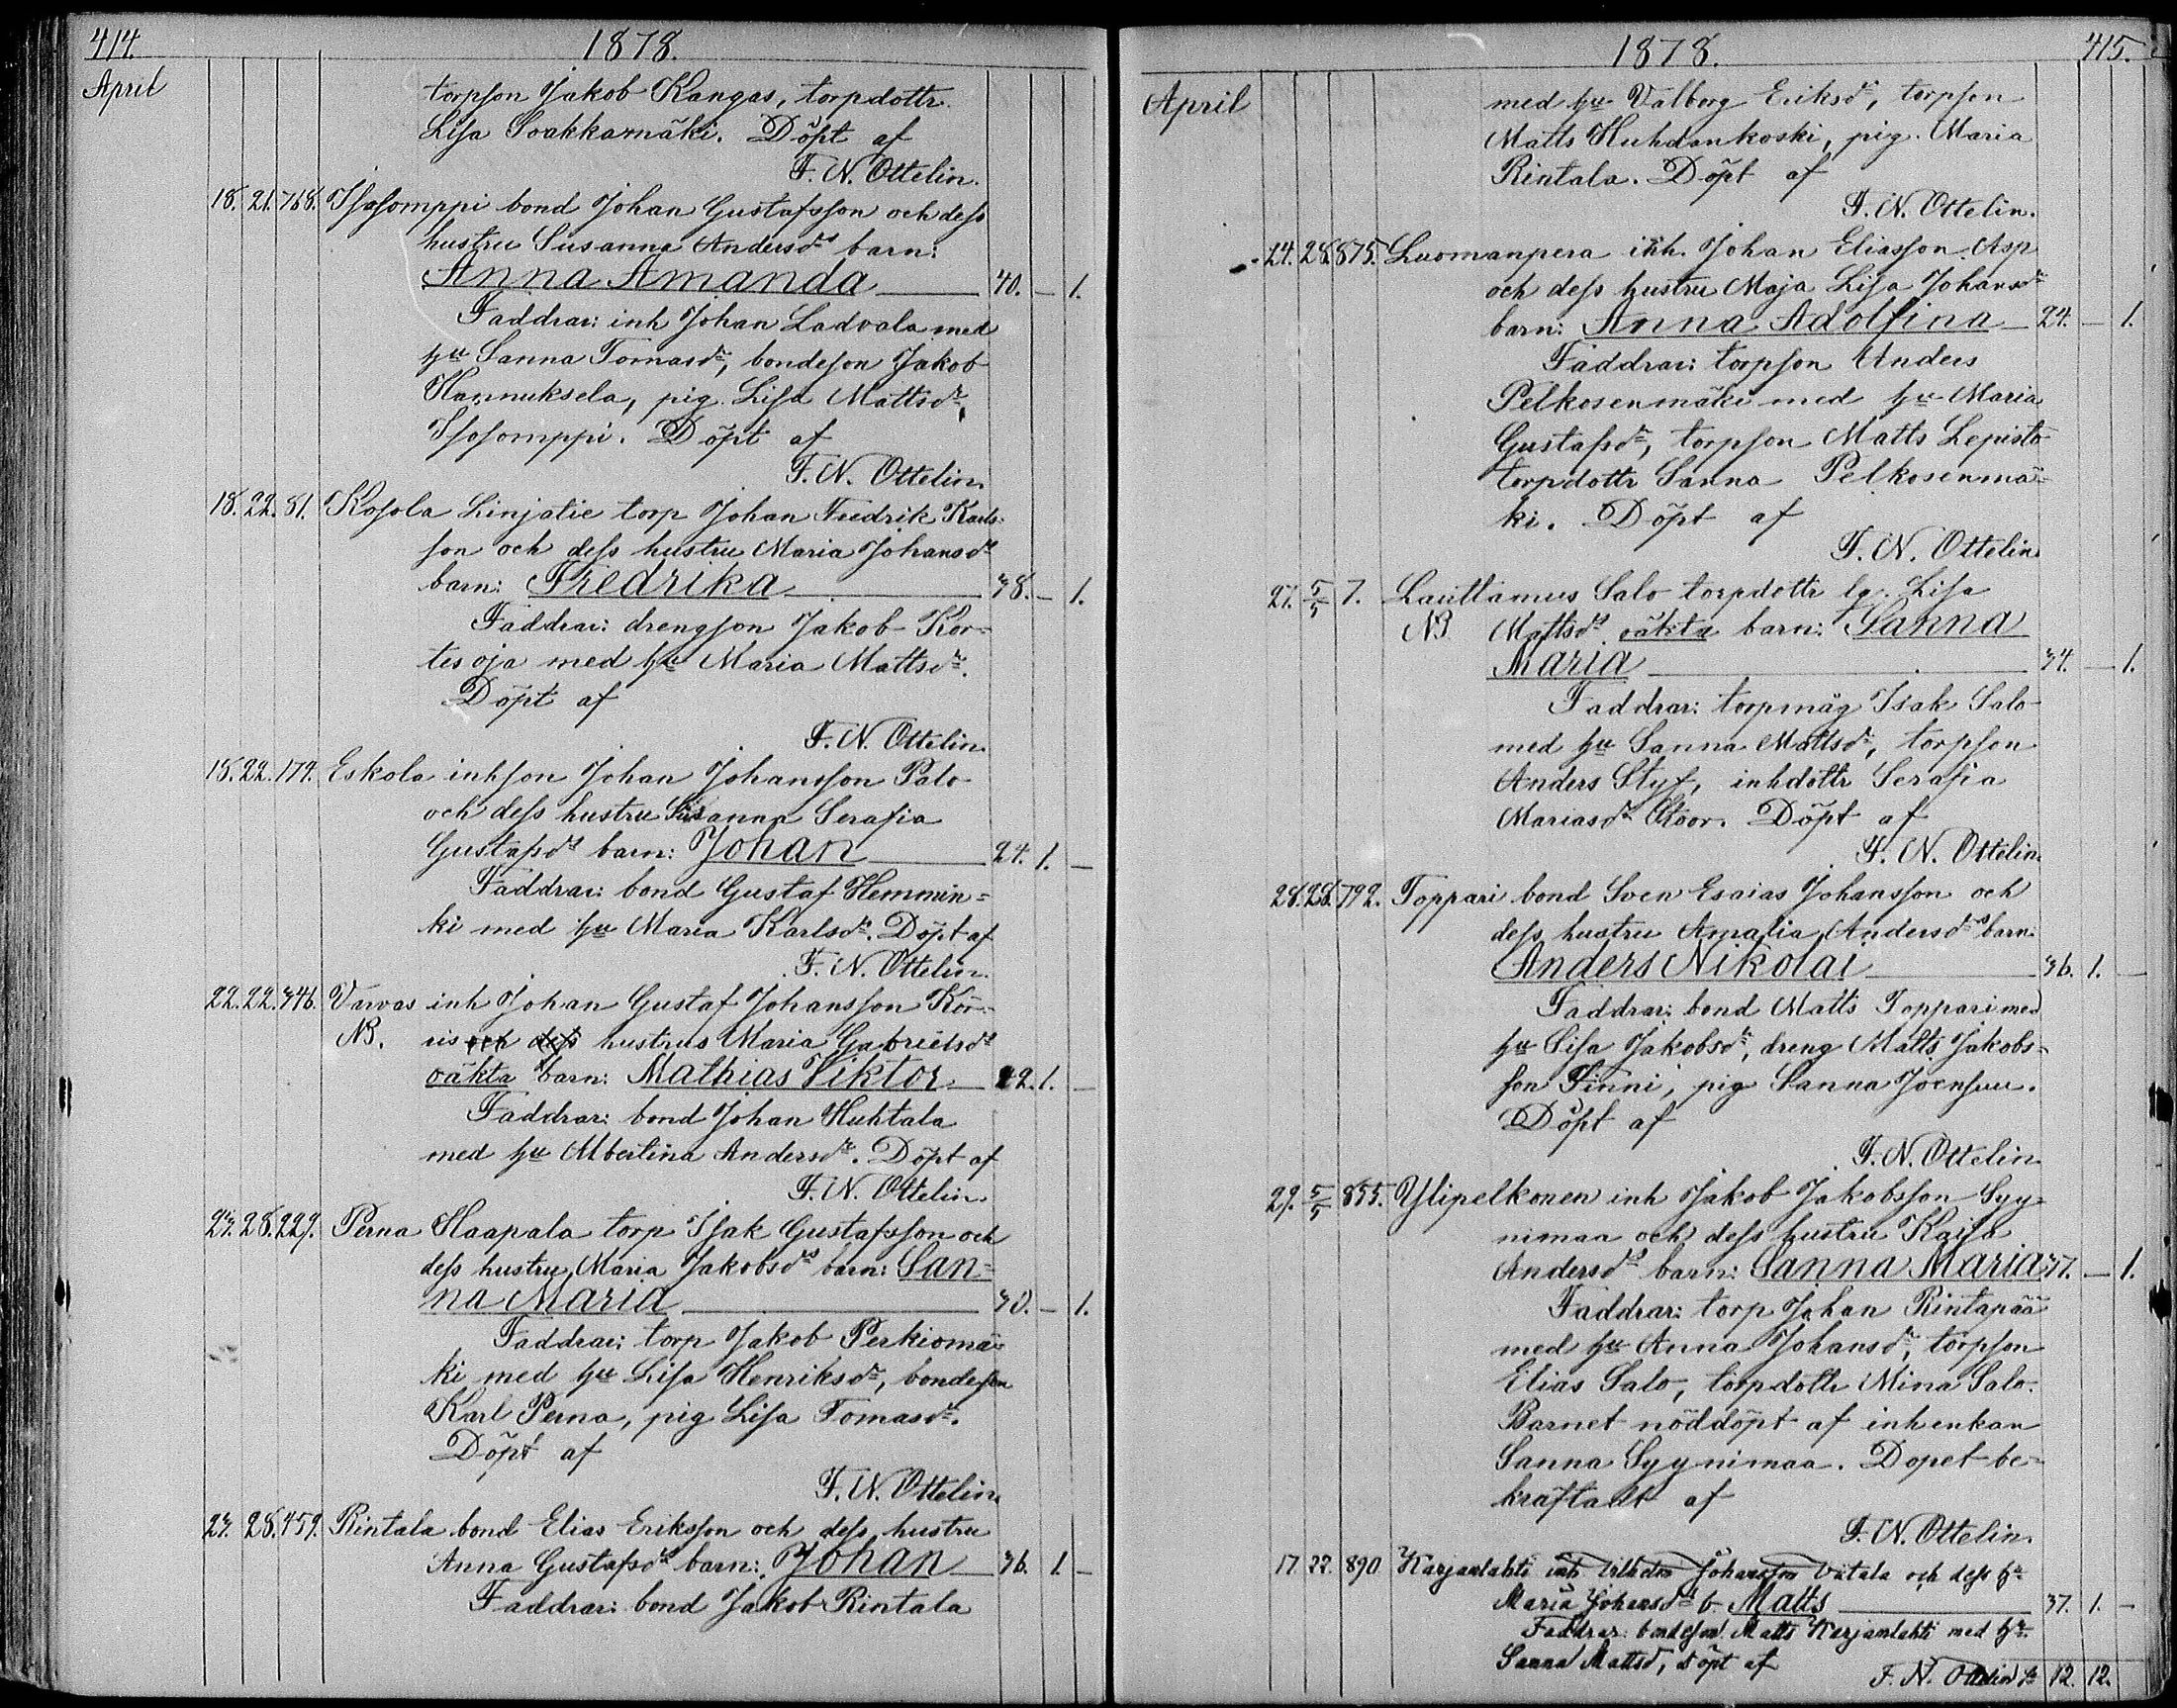 414.
1878.
April
torpson Jakob Kangas, torpdottr.
Lisa Soakkamäki. Döpt af
F. N. Ottelin.
18. 21. 768. Isosomppi bond Johan Gustafsson och dess
hustru Susanna Andersds barn:
Anna Amanda 40. — 1.
Faddrar: inh Johan Ladvala med
hu Sanna Tomasdr, bondeson Jakob
Hannuksela, pig. Lisa Mattsdr,
Isosomppi. Döpt af
F. N. Ottelin.
18. 22. 81. Kosola Linjalie torp Johan Fredrik Karls-
son och dess hustru Maria Johansds
barn: Fredrika 38. — 1.
Faddrar: drengson Jakob Kor-
tesoja med hu Maria Mattsdr.
Döpt af
F. N. Ottelin.
18. 22. 179. Eskola inhson Johan Johansson Palo
och dess hustru Susanna Serafia
Gustafsds barn: Johan 24. 1. —
Faddrar: bond Gustaf Hemmin-
ki med hu Maria Karlsdr. Döpt af
F. N. Ottelin.
22. 22. 346. Varvas inh Johan Gustaf Johansson Kor-
NB. ris och dess hustrus Maria Gabrielsds
oäkta barn: Mathias Viktor 29. 1. —
Faddrar: bond Johan Huhtala
med hu Albertina Andersdr. Döpt af
F. N. Ottelin.
23. 28. 229. Perna Haapala torp Isak Gustafsson och
dess hustru Maria Jakobsds barn: San-
na Maria 30. — 1.
Faddrar: torp Jakob Perkiomä-
ki med hu Lisa Henriksdr, bondeson
Karl Perna, pig Lisa Tomasdr.
Döpt af
F. N. Ottelin.
23. 28. 459. Rintala bond Elias Eriksson och dess hustru
Anna Gustafsds barn: Johan 36. 1. —
Faddrar: bond Jakob Rintala
1878.
415.
April
med hu Valborg Eriksdr, torpson
Matts Huhdankoski, pig. Maria
Rintala. Döpt af
F. N. Ottelin.
24. 28. 875. Luomanpera inh. Johan Eliasson Asp
och dess hustru Maja Lisa Johansdr
barn: Anna Adolfina 24. — 1.
Faddrar: torpson Anders
Pelkosenmäki med hu Maria
Gustafsdr, torpson Matts Lepistö
torpdottr Sanna Pelkosenmä-
ki. Döpt af
F. N. Ottelin
27. 5/5 7. Lauttamus Salo torpdottr lg. Lisa
NB Mattsds oäkta barn: Sanna
Maria 34. — 1.
Faddrar: torpmåg Isak Salo
med hu Sanna Mattsdr, torpson
Anders Styf, inhdottr Serafia
Mariasdr Koor. Döpt af
F. N. Ottelin.
28. 28. 792. Toppari bond Sven Esaias Johansson och
dess hustru Amalia Andersds barn:
Anders Nikolai 36. 1. —
Faddrar: bond Matts Toppari med
hu Lisa Jakobsdr, dreng Matts Jakobs-
son Finni, pig Sanna Joensuu.
Döpt af
F. N. Ottelin
29. 5/5 855. Ylipelkonen inh Jakob Jakobsson Syy-
nimaa och dess hustru Kaisa
Andersds barn: Sanna Maria 37. — 1.
Faddrar: torp Johan Rintapää
med hu Anna Johansdr, torpson
Elias Salo, torpdottr Mina Salo.
Barnet nöddöpt af inhenkan
Sanna Syynimaa. Dopet be-
kräftadt af
F. N. Ottelin.
17 22. 890 Karjanlahti inh Vilhelm Johansson Viitala och dess hu
Maria Johansds b. Matts 37. 1. —
Faddrar: bondeson Matts Karjanlahti med hu
Sanna Mattsd, döpt af
F. N. Ottelin 12. 12.